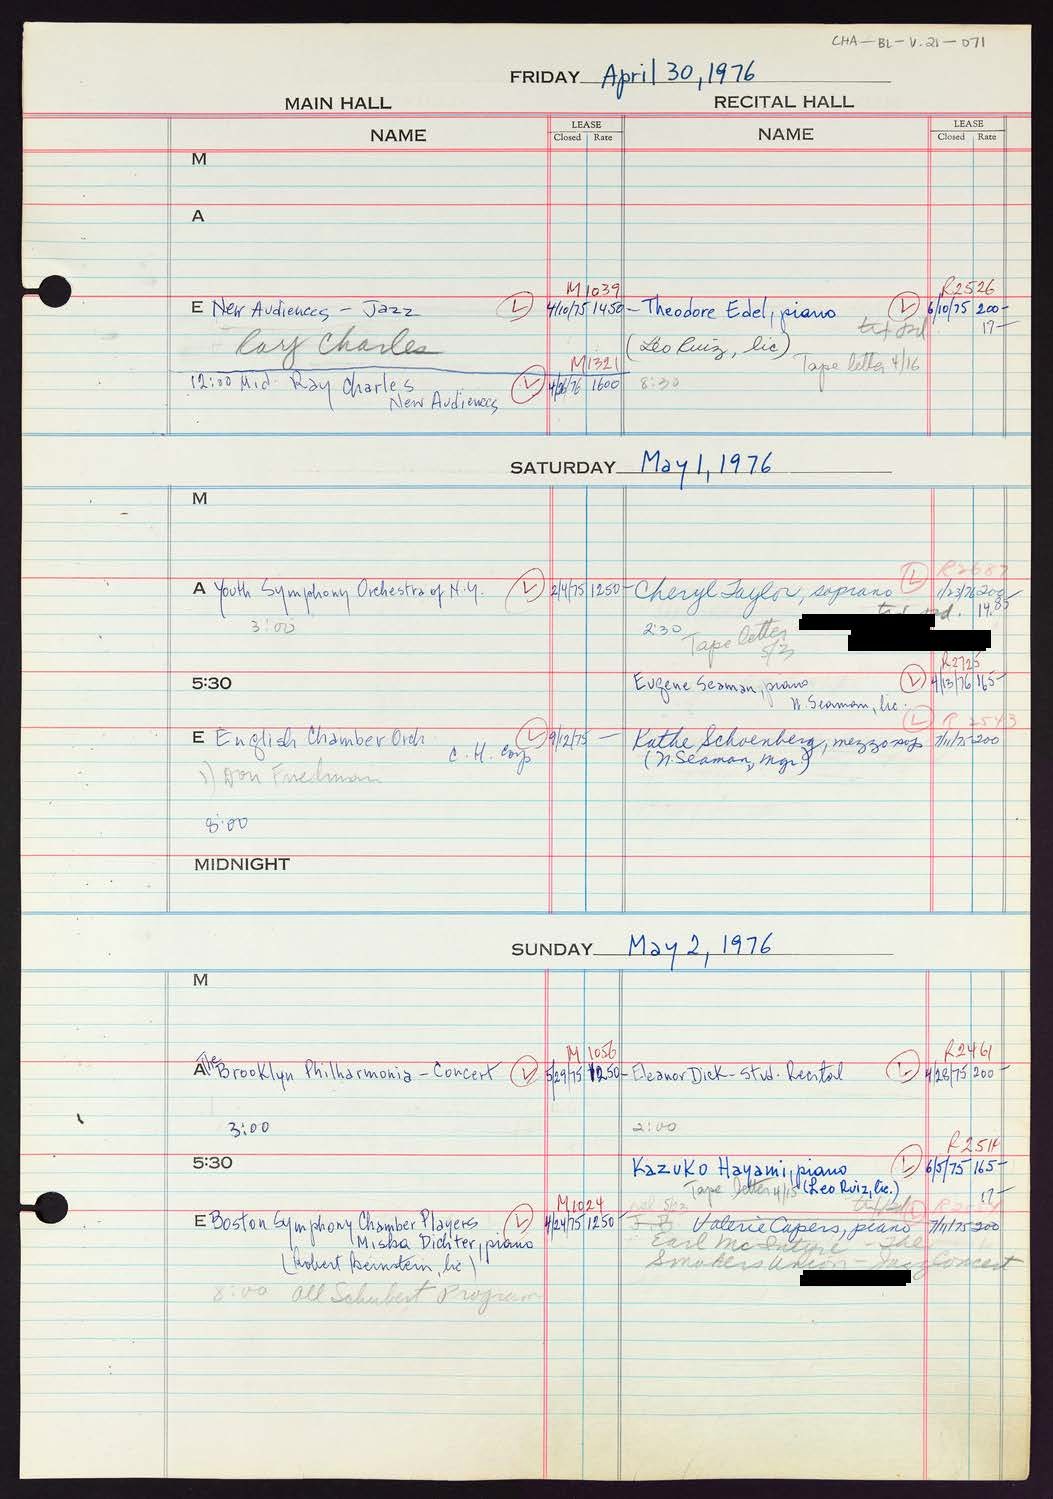 CHA-BL-V.21-071
FRIDAY April 30, 1976
MAIN HALL RECITAL HALL
NAME LEASE Closed Rate NAME LEASE Closed Rate
M
A
M1039 R2526
E New Audiences - Jazz L 4/10/75 1450- Theodore Edel, piano L 6/10/75 200-
17-
Ray Charles (Leo Ruiz, lic)
M1321 Tape letter 4/16
12:00 Mid. Ray Charles L 4/26/76 1600 8:30
New Audiences
SATURDAY May 1, 1976
M
R2687
A Youth Symphony Orchestra of N.Y. L 2/4/75 1250- Cheryl Taylor, soprano L 1/23/76 200
14.85
3:00 2:30 Tape letter
5/3
R2725
5:30 Eugene Seaman, piano L 4/13/76 165-
N. Seaman, lic.
R 2543
E English Chamber Orch L 9/12/75 - Kathe Schoenberg, mezzo sop L 7/11/75 200
C.H. Corp (N. Seaman, Mgr.)
1) Don Friedman
8:00
MIDNIGHT
SUNDAY May 2, 1976
M
M 1056 R2461
A The Brooklyn Philharmonia - Concert L 5/29/75 1250- Eleanor Dick - Stud. Recital L 4/28/75 200-
3:00 2:00
5:30 Kazuko Hayami, piano L 6/5/75 165-
Tape letter 4/15 (Leo Ruiz, lic.) 17-
M1024
E Boston Symphony Chamber Players L 4/24/75 1250- Valerie Capers, piano L 7/11/75 200
Misha Dichter, piano Earl McIntyre - The
(Robert Bernstein, lic) Smokers Union - Jazz Concert
8:00 All Schubert Program